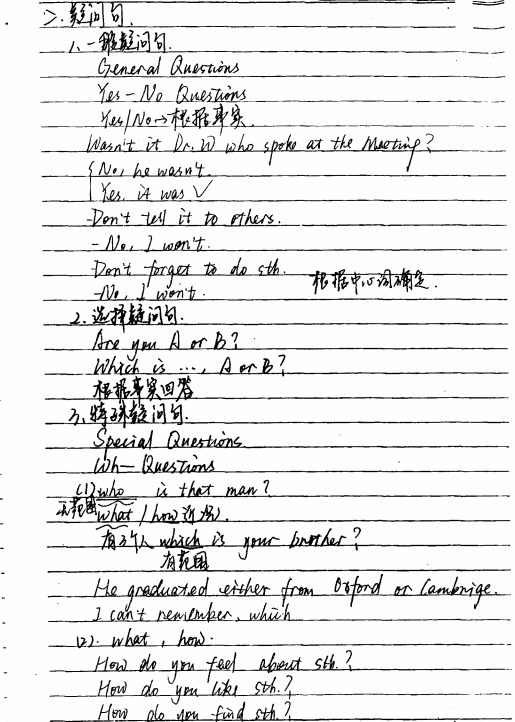 二. 疑问句.
1. 一般疑问句.
General Questions
Yes - No Questions
Yes/No → 根据事实.
Wasn't it Dr. W who spoke at the Meeting?
{ No, he wasn't.
Yes, it was ✓
- Don't tell it to others.
- No, I won't.
- Don't forget to do sth.
- No, I won't. 根据中心词确定.
2. 选择疑问句.
Are you A or B?
Which is ..., A or B?
根据事实回答
3. 特殊疑问句.
Special Questions
Wh- Questions
(1) who is that man?
无范围 what / how
有3个人 which is your brother?
有范围
He graduated either from Oxford or Cambrige.
I can't remember, which
(2). what, how.
How do you feel about sth.?
How do you like sth.?
How do you find sth.?